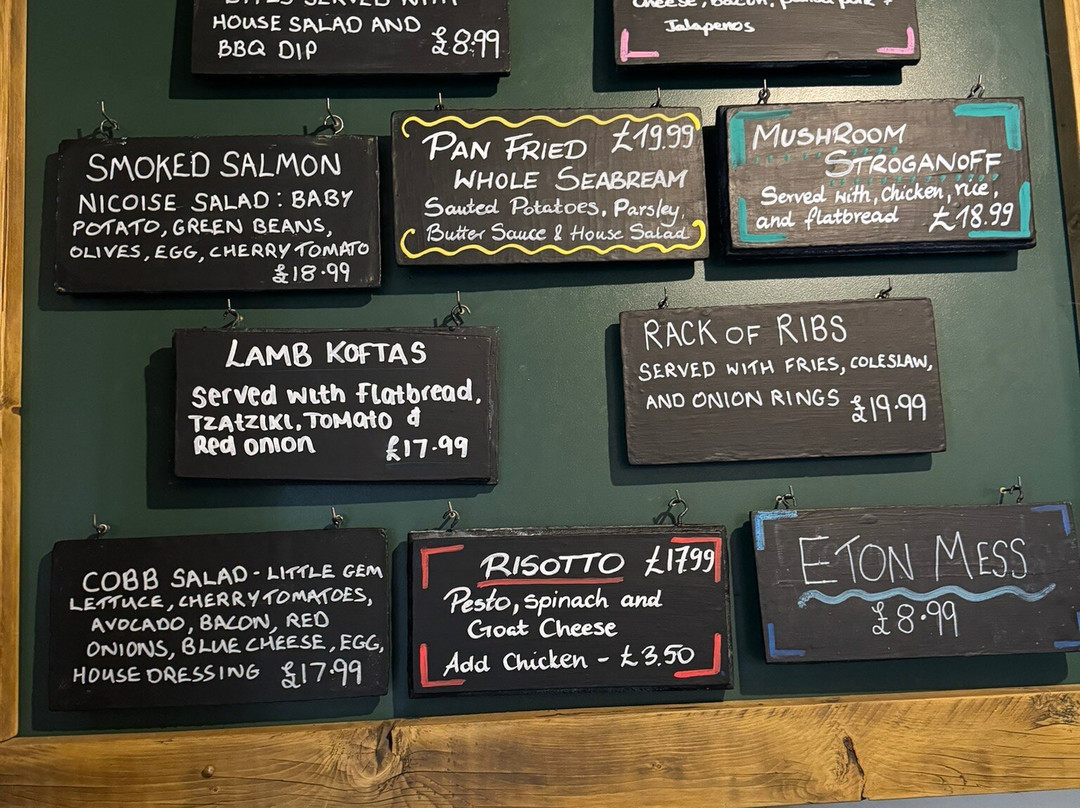 HOUSE SALAD AND
BBQ DIP £8.99
Jalapenos
SMOKED SALMON
NICOISE SALAD: BABY
POTATO, GREEN BEANS,
OLIVES, EGG, CHERRY TOMATO
£18.99
PAN FRIED £19.99
WHOLE SEABREAM
Sauted Potatoes, Parsley,
Butter Sauce & House Salad
MUSHROOM
STROGANOFF
Served with, Chicken, rice,
and flatbread £18.99
LAMB KOFTAS
Served with Flatbread,
TZATZIKI, TOMATO &
Red onion £17.99
RACK OF RIBS
SERVED WITH FRIES, COLESLAW,
AND ONION RINGS £19.99
COBB SALAD - LITTLE GEM
LETTUCE, CHERRY TOMATOES,
AVOCADO, BACON, RED
ONIONS, BLUE CHEESE, EGG,
HOUSE DRESSING £17.99
RISOTTO £17.99
Pesto, spinach and
Goat Cheese
Add Chicken - £3.50
ETON MESS
£8.99